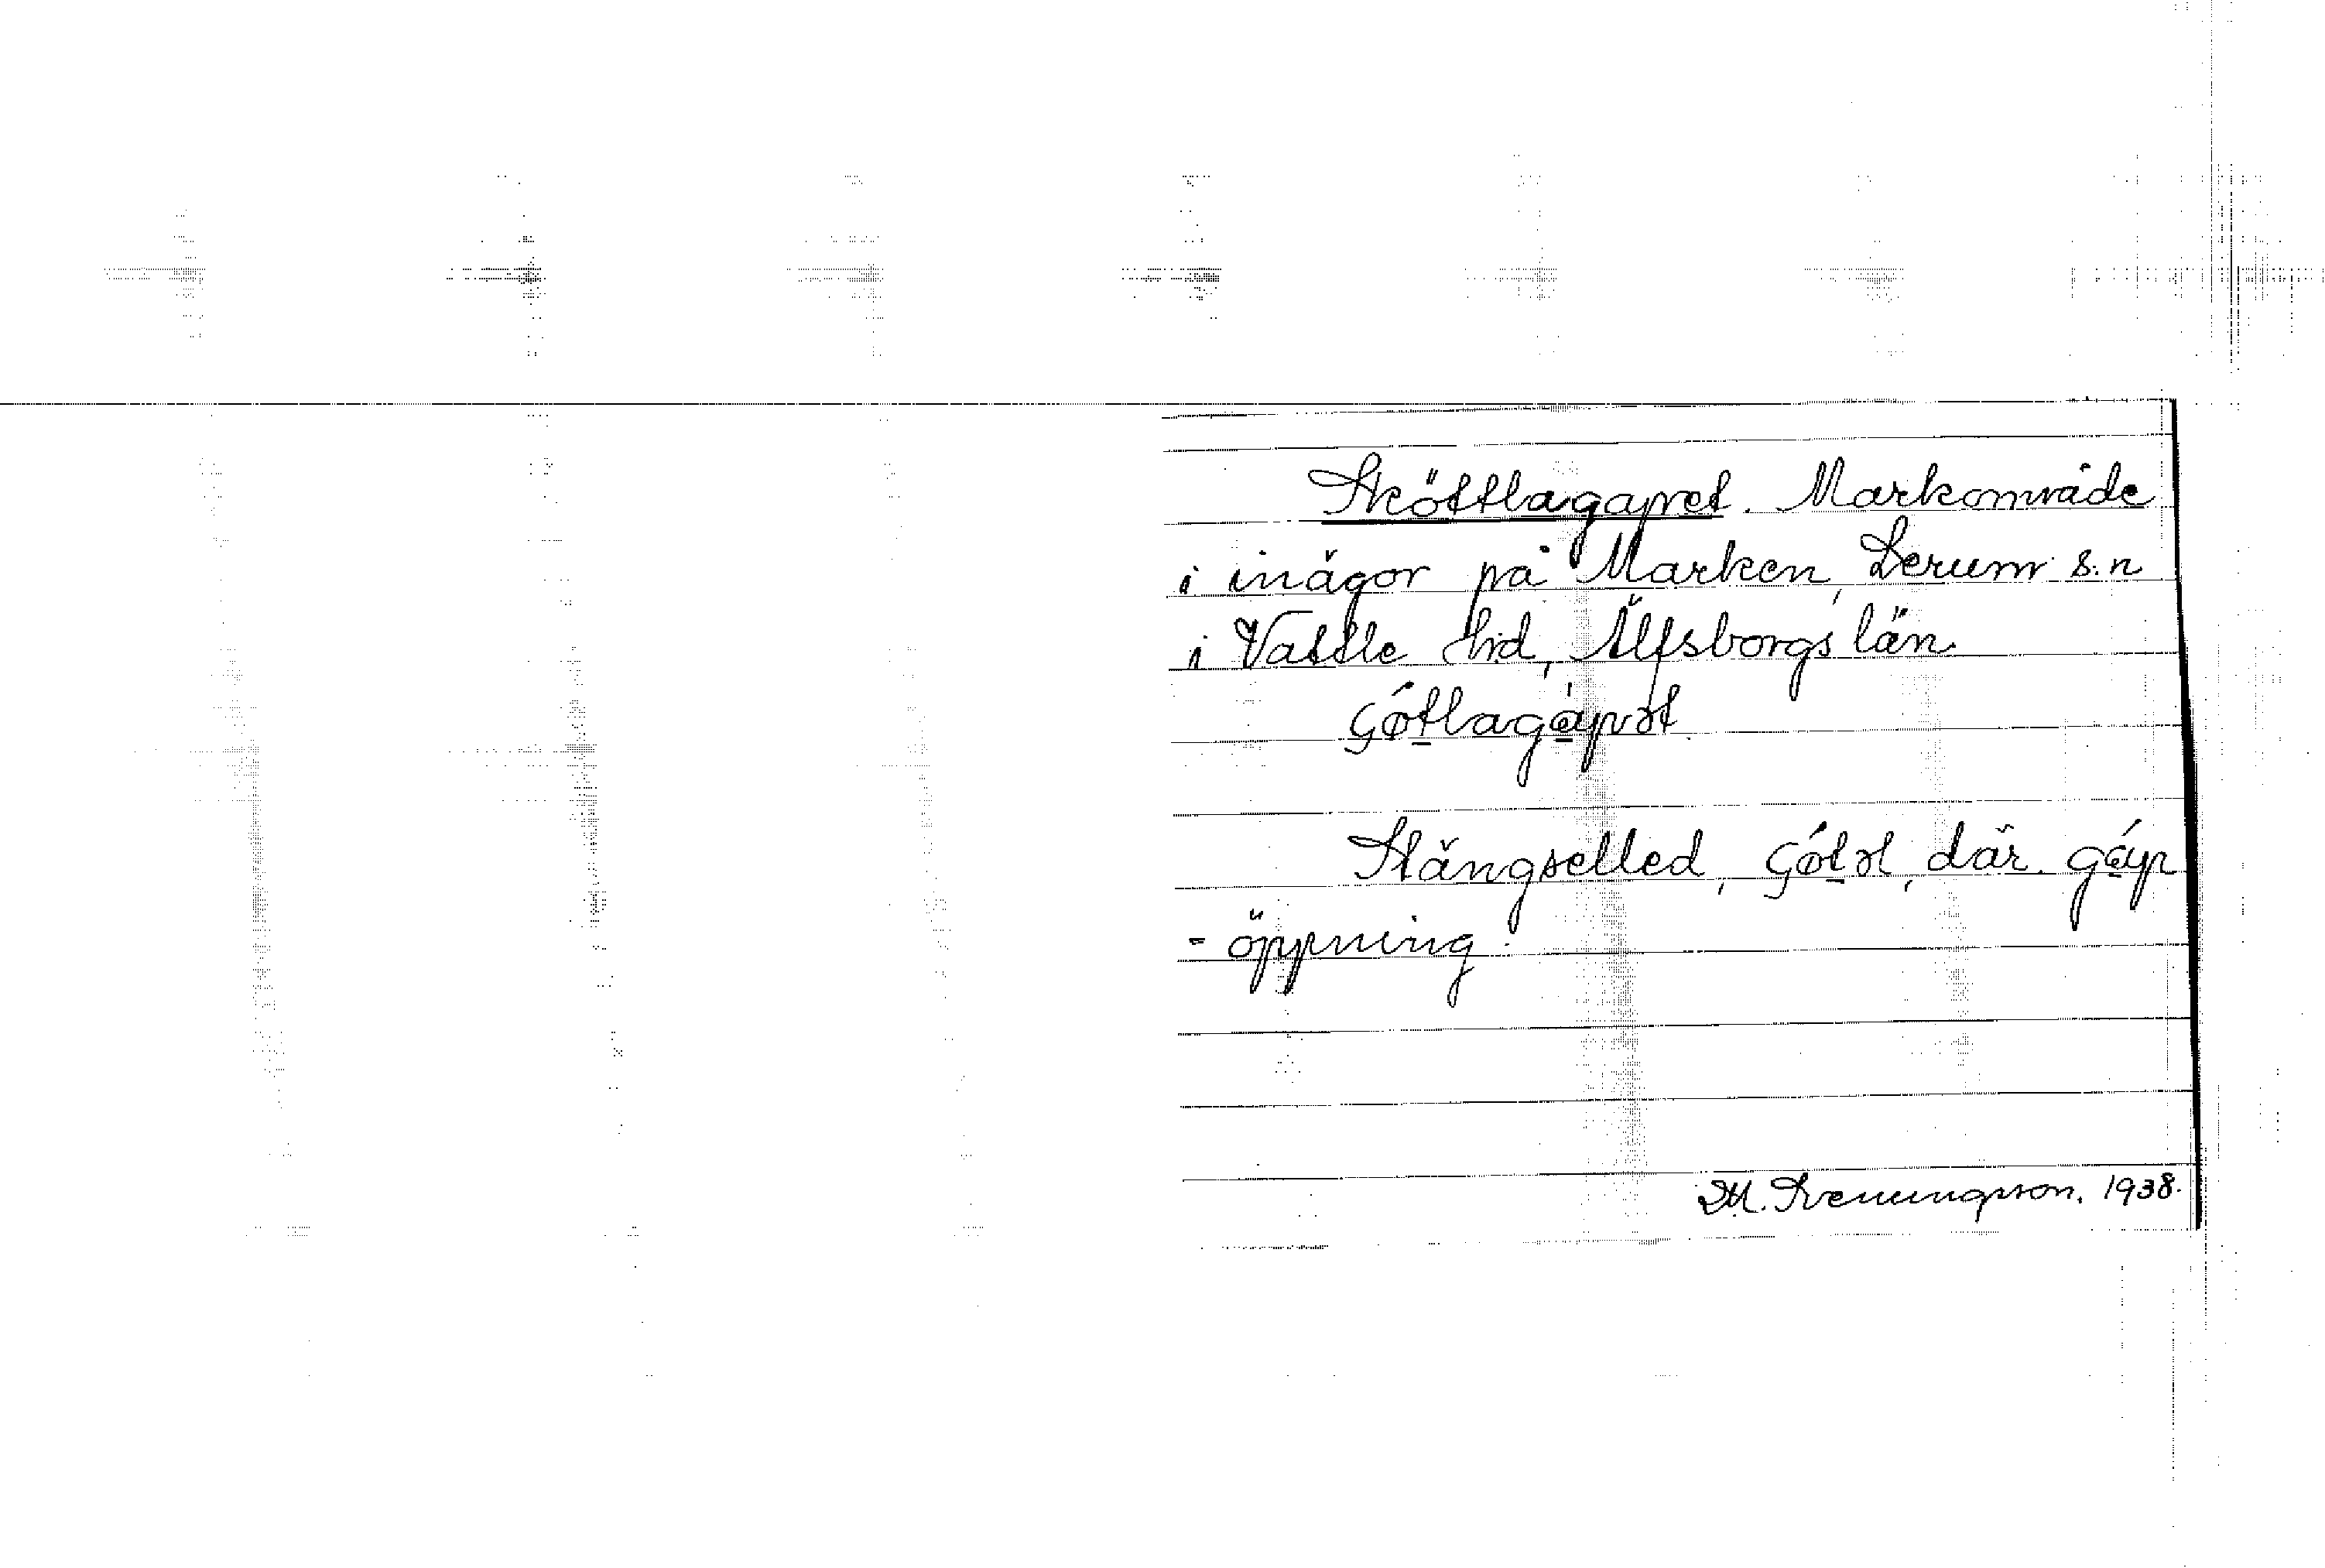 Sköttlagapet. Markområde
i inägor på Marken, Lerum s:n
i Vättle hd, Älfsborgs län.
ʂǿtlagápət.
Stängselled, ʂǿtəl, där. gáp
- öppning.
1938.